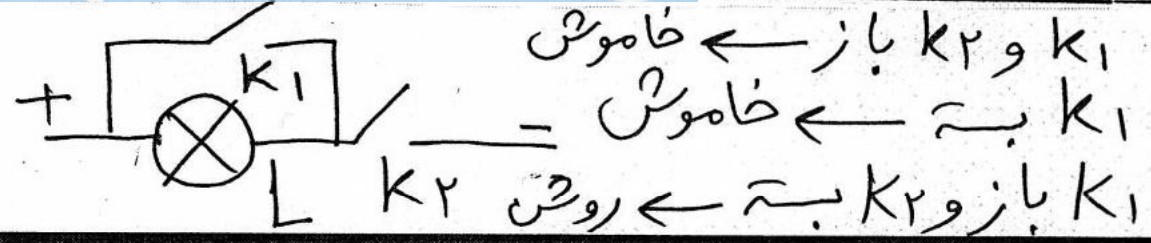 K۱ و K۲ باز ← خاموش
K۱ بسته ← خاموش
K۱ باز و K۲ بسته ← روشن
+
K۱
-
L
K۲